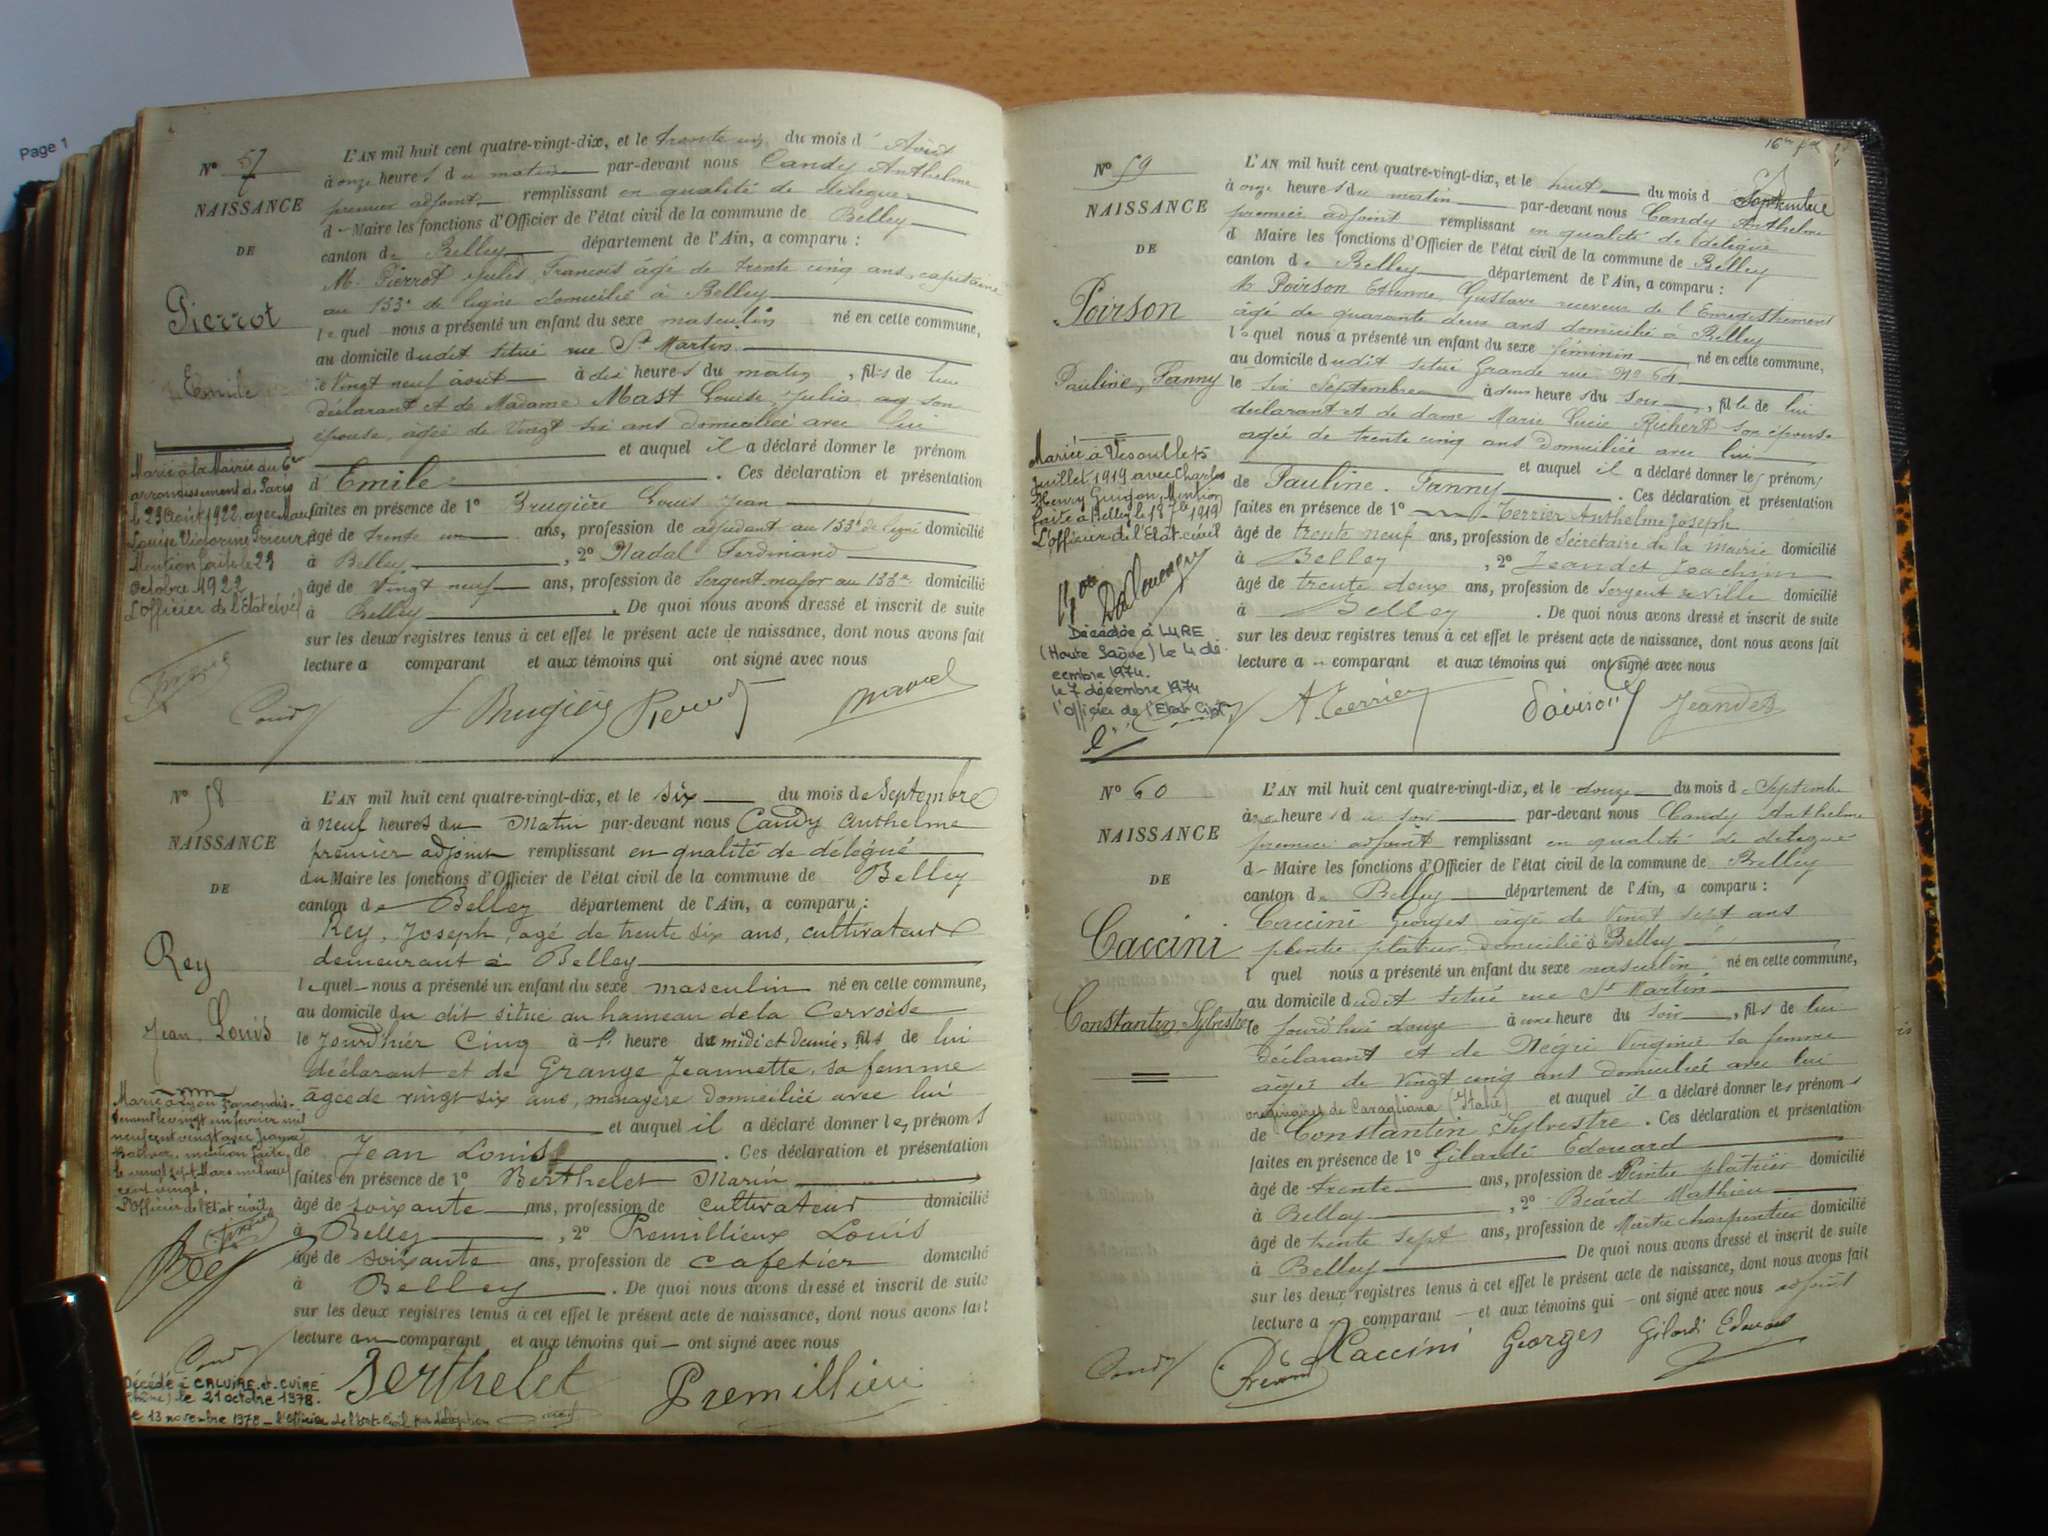 Page 1
N° 57
NAISSANCE
DE
Pierrot
Emile
Marié à la Mairie du 6e
arrondissement de Paris
le 23 Août 1922 avec
Louise Victorine
Mention faite le 23
Octobre 1922
L'officier de l'état civil
L'AN mil huit cent quatre-vingt-dix, et le trente un du mois d'Août
à onze heures du matin par-devant nous Candy Anthelme
premier adjoint remplissant en qualité de délégué
d Maire les fonctions d'Officier de l'état civil de la commune de Belley
canton de Belley département de l'Ain, a comparu :
M. Pierrot Jules, François âgé de trente cinq ans, capitaine
au 133e de ligne domicilié à Belley
lequel nous a présenté un enfant du sexe masculin né en cette commune,
au domicile dudit situé rue St Martin
le Vingt neuf août à dix heures du matin, fils de lui
déclarant et de Madame Mast Louise, Julia son
épouse, âgée de Vingt six ans domiciliée avec lui
et auquel il a déclaré donner le prénom
d'Emile. Ces déclaration et présentation
faites en présence de 1° Brugière Louis Jean
âgé de trente un ans, profession de adjudant au 133e de ligne domicilié
à Belley, 2° Nadal Ferdinand
âgé de Vingt neuf ans, profession de Sergent major au 133e domicilié
à Belley. De quoi nous avons dressé et inscrit de suite
sur les deux registres tenus à cet effet le présent acte de naissance, dont nous avons fait
lecture a comparant et aux témoins qui ont signé avec nous
Candy L Brugière Pierrot
N° 58
NAISSANCE
DE
Rey
Jean Louis
Marié à Lyon
le vingt un février mil
neuf cent vingt avec Jeanne
mention faite
le vingt sept Mars mil neuf
cent vingt.
L'officier de l'Etat civil
L'AN mil huit cent quatre-vingt-dix, et le six du mois de Septembre
à neuf heures du Matin par-devant nous Candy Anthelme
premier adjoint remplissant en qualité de délégué
du Maire les fonctions d'Officier de l'état civil de la commune de Belley
canton de Belley département de l'Ain, a comparu :
Rey, Joseph, agé de trente six ans, cultivateur
demeurant à Belley
lequel nous a présenté un enfant du sexe masculin né en cette commune,
au domicile du dit situé au hameau de la Cervoise
le jourd'hier Cinq à l' heure du midi et demie, fils de lui
déclarant et de Grange Jeannette, sa femme
âgée de vingt six ans, ménagère domiciliée avec lui
et auquel il a déclaré donner les prénoms
de Jean Louis. Ces déclaration et présentation
faites en présence de 1° Berthelet Marin
âgé de soixante ans, profession de cultivateur domicilié
à Belley, 2° Premillieux Louis
âgé de soixante ans, profession de cafetier domicilié
à Belley. De quoi nous avons dressé et inscrit de suite
sur les deux registres tenus à cet effet le présent acte de naissance, dont nous avons fait
lecture au comparant et aux témoins qui ont signé avec nous
Rey
Candy Berthelet Premillieu
Décédé à CALUIRE et CUIRE
(Rhône) le 21 octobre 1978.
Le 13 novembre 1978 - l'Officier de l'Etat Civil par délégation
N° 59
NAISSANCE
DE
Poirson
Pauline, Fanny
Mariée à Vesoul le 5
Juillet 1919 avec Charles
Henry Guigon, Mention
faite à Belley le 1919
L'officier de l'Etat civil
Décédée à LURE
(Haute Saône) le 4 dé-
cembre 1974.
le 7 décembre 1974
l'Officier de l'Etat Civil
L'AN mil huit cent quatre-vingt-dix, et le huit du mois d Septembre
à onze heures du matin par-devant nous Candy Anthelme
premier adjoint remplissant en qualité de délégué
d Maire les fonctions d'Officier de l'état civil de la commune de Belley
canton de Belley département de l'Ain, a comparu :
M Poirson Etienne, Gustave receveur de l'Enregistrement
âgé de quarante deux ans domicilié à Belley
lequel nous a présenté un enfant du sexe féminin né en cette commune,
au domicile dudit situé Grande rue N° 64
le six Septembre à deux heures du soir, fille de lui
déclarant et de dame Marie Lucie Richert son épouse
agée de trente cinq ans domiciliée avec lui
et auquel il a déclaré donner les prénoms
de Pauline. Fanny. Ces déclaration et présentation
faites en présence de 1° Terrier Anthelme Joseph
âgé de trente neuf ans, profession de Secrétaire de la Mairie domicilié
à Belley, 2° Jeandet Joachim
âgé de trente deux ans, profession de Sergent de Ville domicilié
à Belley. De quoi nous avons dressé et inscrit de suite
sur les deux registres tenus à cet effet le présent acte de naissance, dont nous avons fait
lecture a comparant et aux témoins qui ont signé avec nous
A. Terrier Poirson Jeandet
N° 60
NAISSANCE
DE
Caccini
Constantin, Sylvestre
L'AN mil huit cent quatre-vingt-dix, et le douze du mois de Septembre
à heures du soir par-devant nous Candy Anthelme
premier adjoint remplissant en qualité de délégué
d Maire les fonctions d'Officier de l'état civil de la commune de Belley
canton de Belley département de l'Ain, a comparu :
Caccini Georges âgé de Vingt sept ans
peintre plâtrier domicilié à Belley
lequel nous a présenté un enfant du sexe masculin né en cette commune,
au domicile dudit situé rue St Martin
le jourd'hui douze à une heure du soir, fils de lui
déclarant et de Negri Virginie sa femme
âgée de Vingt cinq ans domiciliée avec lui
originaires de (Italie) et auquel il a déclaré donner les prénoms
de Constantin, Sylvestre. Ces déclaration et présentation
faites en présence de 1° Gilardi Edouard
âgé de trente ans, profession de Peintre plâtrier domicilié
à Belley, 2° Béard Mathieu
âgé de trente sept ans, profession de Maître charpentier domicilié
à Belley De quoi nous avons dressé et inscrit de suite
sur les deux registres tenus à cet effet le présent acte de naissance, dont nous avons fait
lecture a comparant et aux témoins qui ont signé avec nous adjoint
Candy Caccini Georges Gilardi Edouard